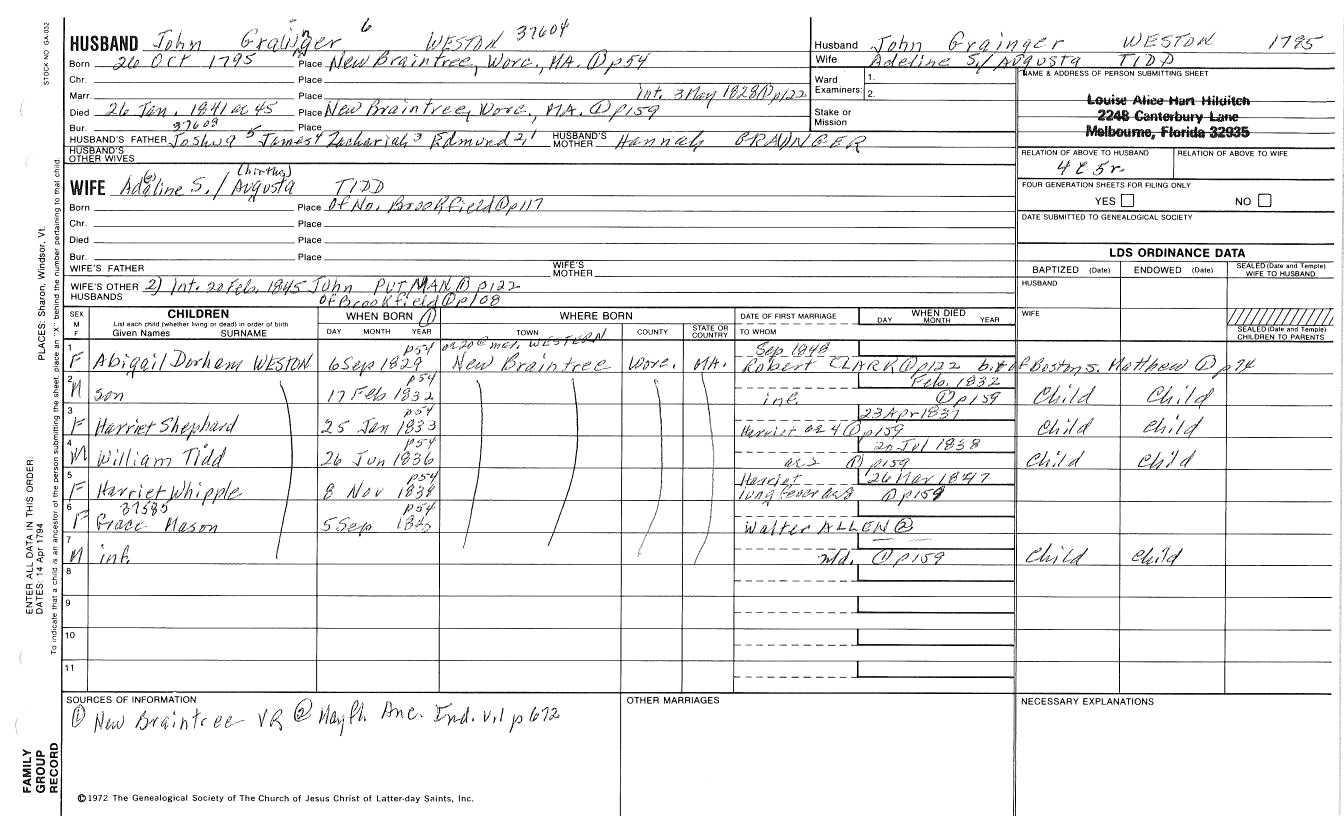 STOCK NO GA-032
HUSBAND John Grainger 6 WESTON 37604
Born 26 Oct 1795 Place New Braintree, Worc., MA. ① p54
Chr. Place
Marr. Place int. 3 May 1828 ① p122
Died 26 Jan. 1841 ae 45 Place New Braintree, Worc., MA. ① p159
Bur. Place
37603
HUSBAND'S FATHER Joshua 5 James 4 Zachariah 3 Edmund 2,1 HUSBAND'S MOTHER Hannah GRAINGER
HUSBAND'S OTHER WIVES
Husband John Grainger WESTON 1795
Wife Adeline S./Augusta TIDD
Ward Examiners: 1.
2.
Stake or Mission
NAME & ADDRESS OF PERSON SUBMITTING SHEET
Louise Alice Hart Hilditch
2248 Canterbury Lane
Melbourne, Florida 32935
RELATION OF ABOVE TO HUSBAND RELATION OF ABOVE TO WIFE
4c5r
FOUR GENERATION SHEETS FOR FILING ONLY
YES NO
DATE SUBMITTED TO GENEALOGICAL SOCIETY
(births)
WIFE Adaline S./Augusta TIDD
(e)
Born Place of No. Brookfield ① p117
Chr. Place
Died Place
Bur. Place
WIFE'S FATHER WIFE'S MOTHER
WIFE'S OTHER HUSBANDS 2) Int. 20 Feb. 1845 John PUTMAN ① p122
of Brookfield ① p108
LDS ORDINANCE DATA
BAPTIZED (Date) ENDOWED (Date) SEALED (Date and Temple) WIFE TO HUSBAND
HUSBAND
WIFE
SEALED (Date and Temple) CHILDREN TO PARENTS
SEX M F CHILDREN WHEN BORN ① WHERE BORN DATE OF FIRST MARRIAGE WHEN DIED
List each child (whether living or dead) in order of birth
Given Names SURNAME DAY MONTH YEAR TOWN COUNTY STATE OR COUNTRY TO WHOM DAY MONTH YEAR
p54 ae 20 @ mar. WESTERN Sep 1848
1 F Abigail Dorham WESTON 6 Sep 1829 New Braintree Worc. MA. Robert CLARK ① p122 b. of Boston s. Matthew ① p74
p54 Feb. 1832
2 M son 17 Feb 1832 inf. ① p159 Child Child
p54 23 Apr 1837
3 F Harriet Shephard 25 Jan 1833 Harriet ae 4 ① p159 Child Child
p54 20 Jul 1838
4 M William Tidd 26 Jun 1836 ae 2 ① p159 Child Child
p54 Harriet 26 Mar 1847
5 F Harriet Whipple 8 Nov 1838 lung fever ae 8 ① p159
37585 p54
6 F Grace Mason 5 Sep Walter ALLEN ②
7 M inf. n/d. ① p159 Child Child
8
9
10
11
SOURCES OF INFORMATION
① New Braintree VR ② Mayfl. Anc. Ind. v.1 p 672
OTHER MARRIAGES
NECESSARY EXPLANATIONS
©1972 The Genealogical Society of The Church of Jesus Christ of Latter-day Saints, Inc.
FAMILY GROUP RECORD
ENTER ALL DATA IN THIS ORDER:
DATES: 14 Apr 1794
PLACES: Sharon, Windsor, Vt.
To indicate that a child is an ancestor of the person submitting the sheet, place an "X" behind the number pertaining to that child.